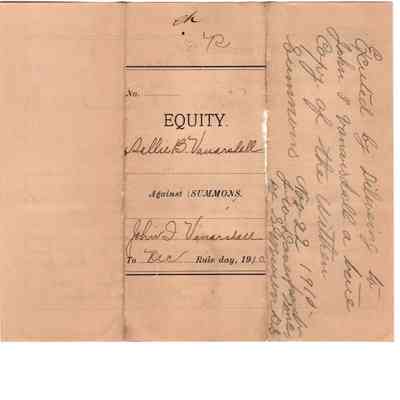 ok
No.
EQUITY.
Sallie B. Vanarsdell
Against } SUMMONS.
John I. Vanarsdall
To Dec Rule day, 1910
Excuted by Dilivering to
John I Vanarsdall a true
Copy of the Within
Summons Nov 22 1910